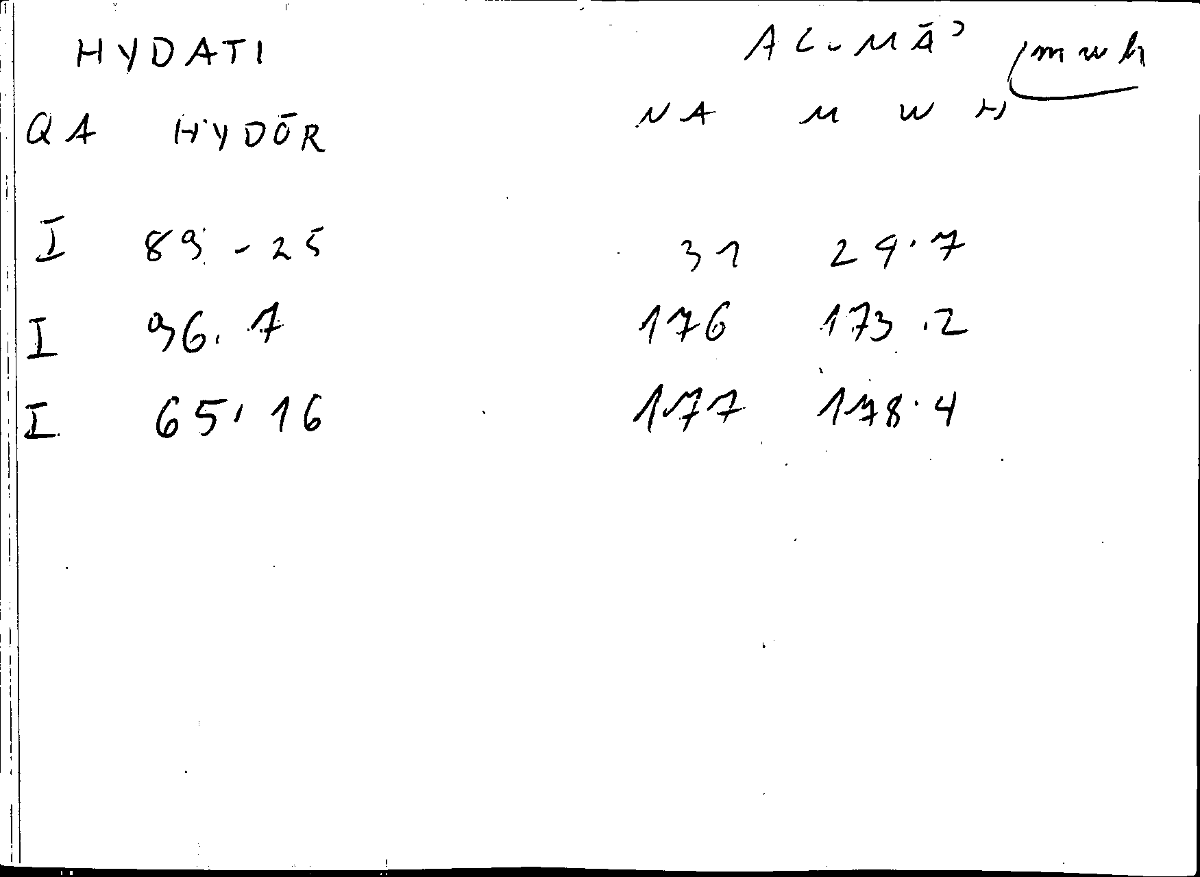 HYDATI AL-MĀʾ mwh
QA HYDŌR NA M W H
I 89-25 31 29.7
I 96.7 176 173.2
I 65.16 177 178.4